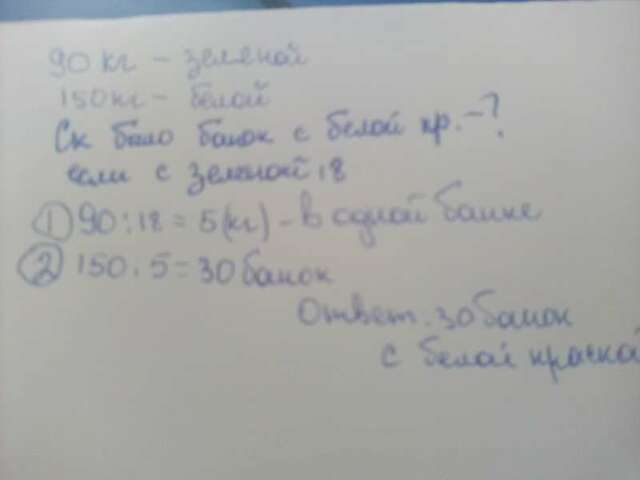 90 кг – зеленой
150 кг – белой
Ск было банок с белой кр. – ?
если с зеленой 18
① 90 : 18 = 5 (кг) – в одной банке
② 150 : 5 = 30 банок
Ответ. 30 банок
с белой краской